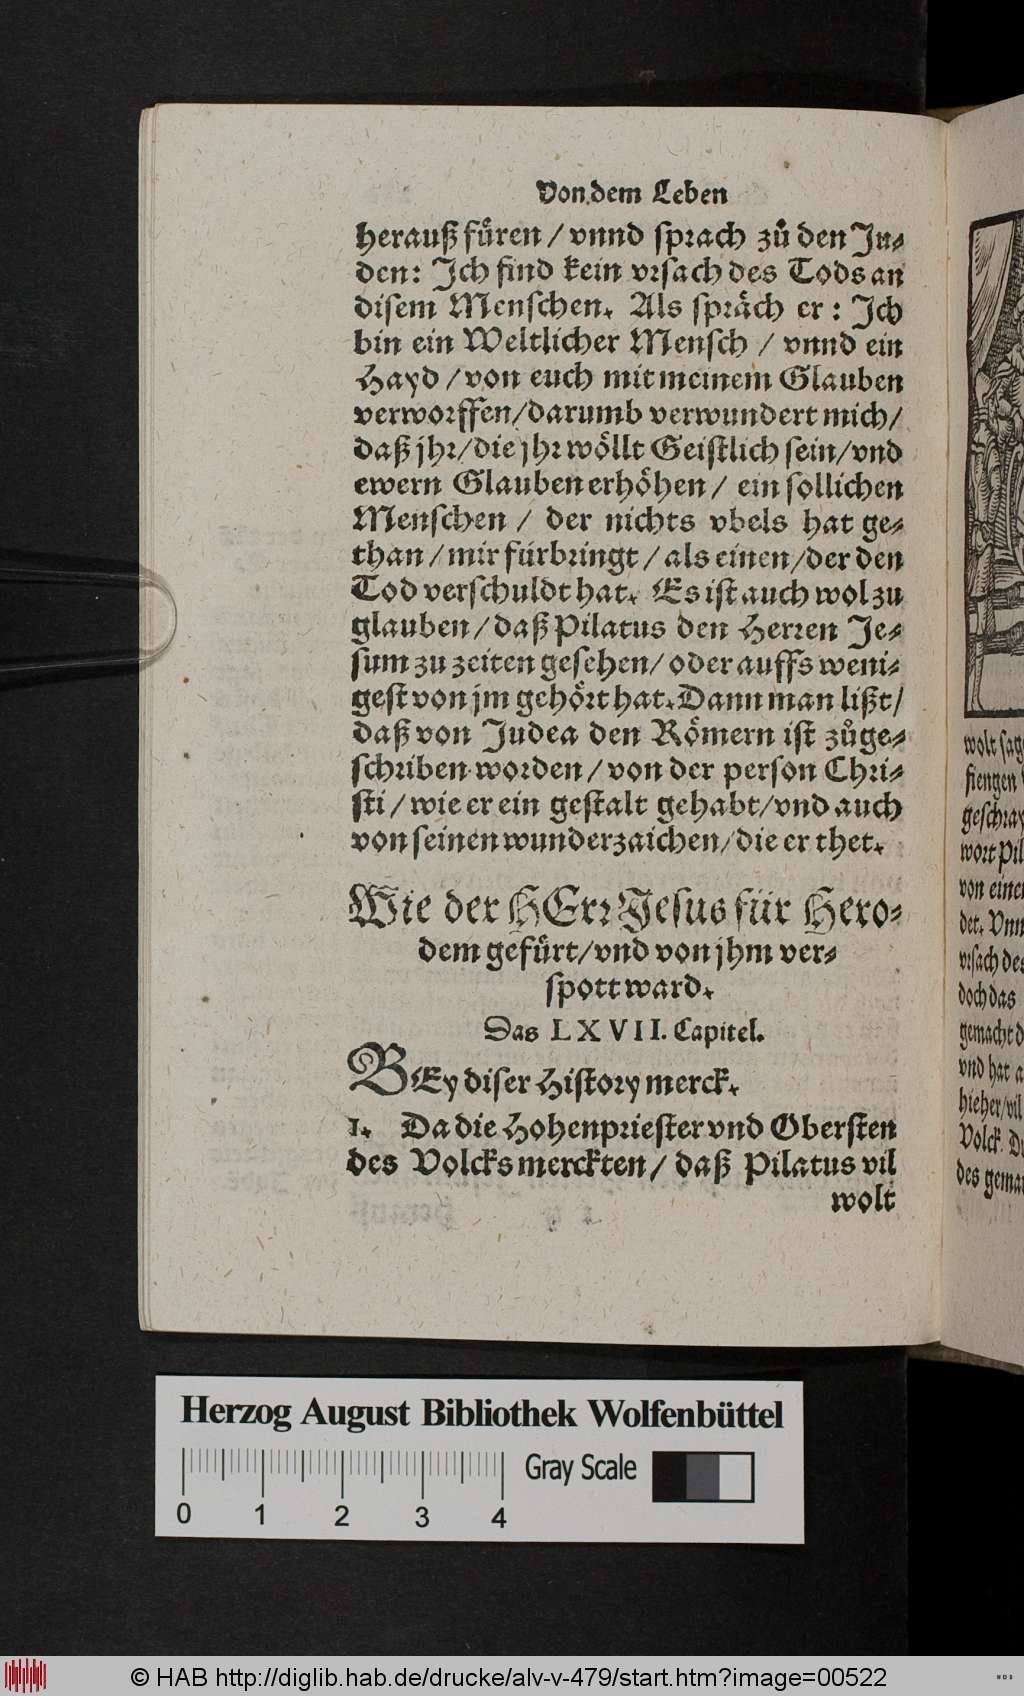 Von dem Leben
herauß fuͤren / vnnd sprach zů den Ju⸗
den: Ich find kein vrsach des Tods an
disem Menschen. Als spraͤch er: Ich
bin ein Weltlicher Mensch / vnnd ein
Hayd / von euch mit meinem Glauben
verworffen/ darumb verwundert mich/
daß jhr/ die jhr woͤllt Geistlich sein/ vnd
ewern Glauben erhoͤhen / ein sollichen
Menschen / der nichts vbels hat ge⸗
than / mir fürbringt / als einen / der den
Tod verschuldt hat. Es ist auch wol zu
glauben / daß Pilatus den Herren Je⸗
sum zu zeiten gesehen/ oder auffs weni⸗
gest von jm gehoͤrt hat. Dann man lißt/
daß von Judea den Roͤmern ist zůge⸗
schriben worden / von der person Chri⸗
sti / wie er ein gestalt gehabt/ vnd auch
von seinen wunderzaichen/ die er thet.
Wie der HErr Jesus für Hero⸗
dem gefuͤrt/ vnd von jhm ver⸗
spott ward.
Das LXVII. Capitel.
BEy diser History merck.
1. Da die Hohenpriester vnd Obersten
des Volcks merckten/ daß Pilatus vil
wolt
wolt sag
fiengen
geschray
wort Pil
von einer
det. Vnn
vrsach des
doch das
gemacht d
vnd hat a
hieher/ vil
Volck. D
des gema
Herzog August Bibliothek Wolfenbüttel
Gray Scale
0 1 2 3 4
© HAB http://diglib.hab.de/drucke/alv-v-479/start.htm?image=00522